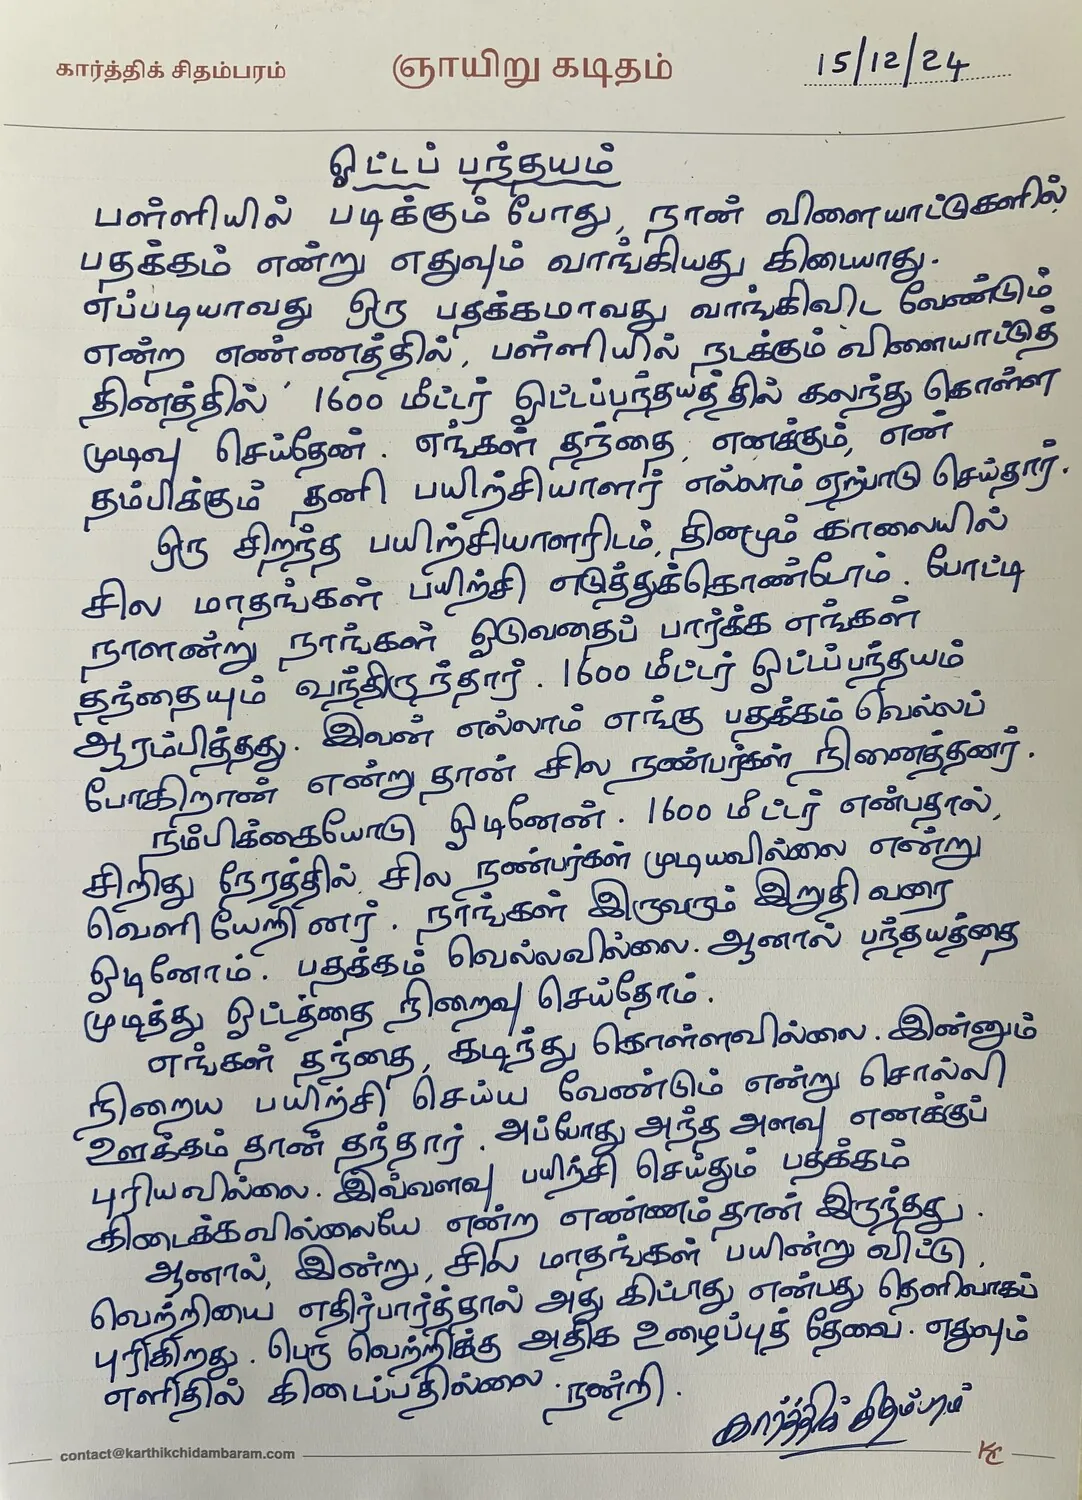 கார்த்திக் சிதம்பரம்
ஞாயிறு கடிதம்
15/12/24
ஓட்டப் பந்தயம்
பள்ளியில் படிக்கும் போது, நான் விளையாட்டுகளில்
பதக்கம் என்று எதுவும் வாங்கியது கிடையாது.
எப்படியாவது ஒரு பதக்கமாவது வாங்கிவிட வேண்டும்
என்ற எண்ணத்தில், பள்ளியில் நடக்கும் விளையாட்டுத்
தினத்தில் 1600 மீட்டர் ஓட்டப்பந்தயத்தில் கலந்து கொள்ள
முடிவு செய்தேன். எங்கள் தந்தை, எனக்கும், என்
தம்பிக்கும் தனி பயிற்சியாளர் எல்லாம் ஏற்பாடு செய்தார்.
ஒரு சிறந்த பயிற்சியாளரிடம், தினமும் காலையில்
சில மாதங்கள் பயிற்சி எடுத்துக்கொண்டோம். போட்டி
நாளன்று நாங்கள் ஓடுவதைப் பார்க்க எங்கள்
தந்தையும் வந்திருந்தார். 1600 மீட்டர் ஓட்டப்பந்தயம்
ஆரம்பித்தது. இவன் எல்லாம் எங்கு பதக்கம் வெல்லப்
போகிறான் என்று தான் சில நண்பர்கள் நினைத்தனர்.
நம்பிக்கையோடு ஓடினேன். 1600 மீட்டர் என்பதால்,
சிறிது நேரத்தில் சில நண்பர்கள் முடியவில்லை என்று
வெளியேறினர். நாங்கள் இருவரும் இறுதி வரை
ஓடினோம். பதக்கம் வெல்லவில்லை. ஆனால் பந்தயத்தை
முடித்து ஓட்டத்தை நிறைவு செய்தோம்.
எங்கள் தந்தை, கடிந்து கொள்ளவில்லை. இன்னும்
நிறைய பயிற்சி செய்ய வேண்டும் என்று சொல்லி
ஊக்கம் தான் தந்தார். அப்போது அந்த அளவு எனக்குப்
புரியவில்லை. இவ்வளவு பயிற்சி செய்தும் பதக்கம்
கிடைக்கவில்லையே என்ற எண்ணம் தான் இருந்தது.
ஆனால், இன்று, சில மாதங்கள் பயின்று விட்டு,
வெற்றியை எதிர்பார்த்தால் அது கிட்டாது என்பது தெளிவாகப்
புரிகிறது. பெரு வெற்றிக்கு அதிக உழைப்புத் தேவை. எதுவும்
எளிதில் கிடைப்பதில்லை. நன்றி.
கார்த்திக் சிதம்பரம்
contact@karthikchidambaram.com
KC